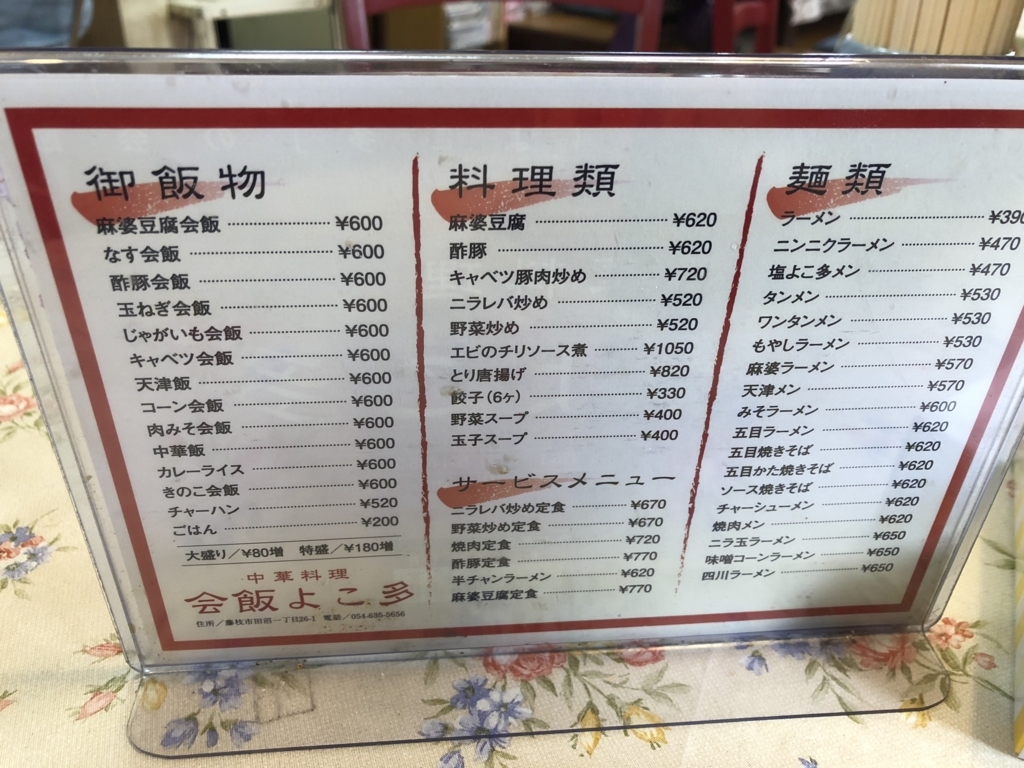 御飯物
麻婆豆腐会飯 ¥600
なす会飯 ¥600
酢豚会飯 ¥600
玉ねぎ会飯 ¥600
じゃがいも会飯 ¥600
キャベツ会飯 ¥600
天津飯 ¥600
コーン会飯 ¥600
肉みそ会飯 ¥600
中華飯 ¥600
カレーライス ¥600
きのこ会飯 ¥600
チャーハン ¥520
ごはん ¥200
大盛り/¥80増 特盛/¥180増
中華料理
会飯よこ多
住所/藤枝市田沼一丁目26-1 電話/054-635-5656
料理類
麻婆豆腐 ¥620
酢豚 ¥620
キャベツ豚肉炒め ¥720
ニラレバ炒め ¥520
野菜炒め ¥520
エビのチリソース煮 ¥1050
とり唐揚げ ¥820
餃子(6ヶ) ¥330
野菜スープ ¥400
玉子スープ ¥400
サービスメニュー
ニラレバ炒め定食 ¥670
野菜炒め定食 ¥670
焼肉定食 ¥720
酢豚定食 ¥770
半チャンラーメン ¥620
麻婆豆腐定食 ¥770
麺類
ラーメン ¥390
ニンニクラーメン ¥470
塩よこ多メン ¥470
タンメン ¥530
ワンタンメン ¥530
もやしラーメン ¥530
麻婆ラーメン ¥570
天津メン ¥570
みそラーメン ¥600
五目ラーメン ¥620
五目焼きそば ¥620
五目かた焼きそば ¥620
ソース焼きそば ¥620
チャーシューメン ¥620
焼肉メン ¥620
ニラ玉ラーメン ¥650
味噌コーンラーメン ¥650
四川ラーメン ¥650